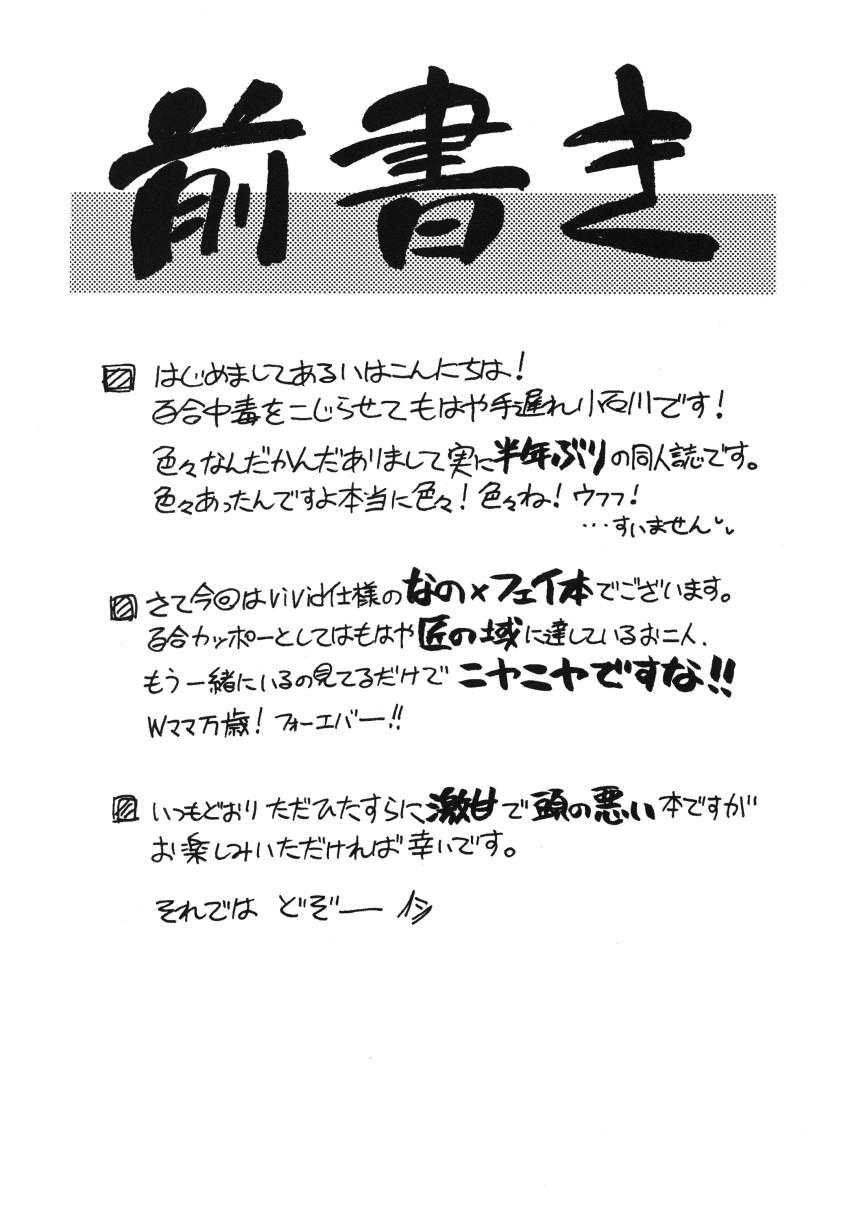 前書き
はじめましてあるいはこんにちは!
百合中毒をこじらせてもはや手遅れ小石川です!
色々なんだかんだありまして実に半年ぶりの同人誌です。
色々あったんですよ本当に色々!色々ね!ウフフ!
…すいません
さて今回はViVid仕様のなの×フェイ本でございます。
百合カッポーとしてはもはや匠の域に達しているお二人、
もう一緒にいるの見てるだけでニヤニヤですな!!
Wママ万歳!フォーエバー!!
いつもどおりただひたすらに激甘で頭の悪い本ですが
お楽しみいただければ幸いです。
それでは どぞー イシ